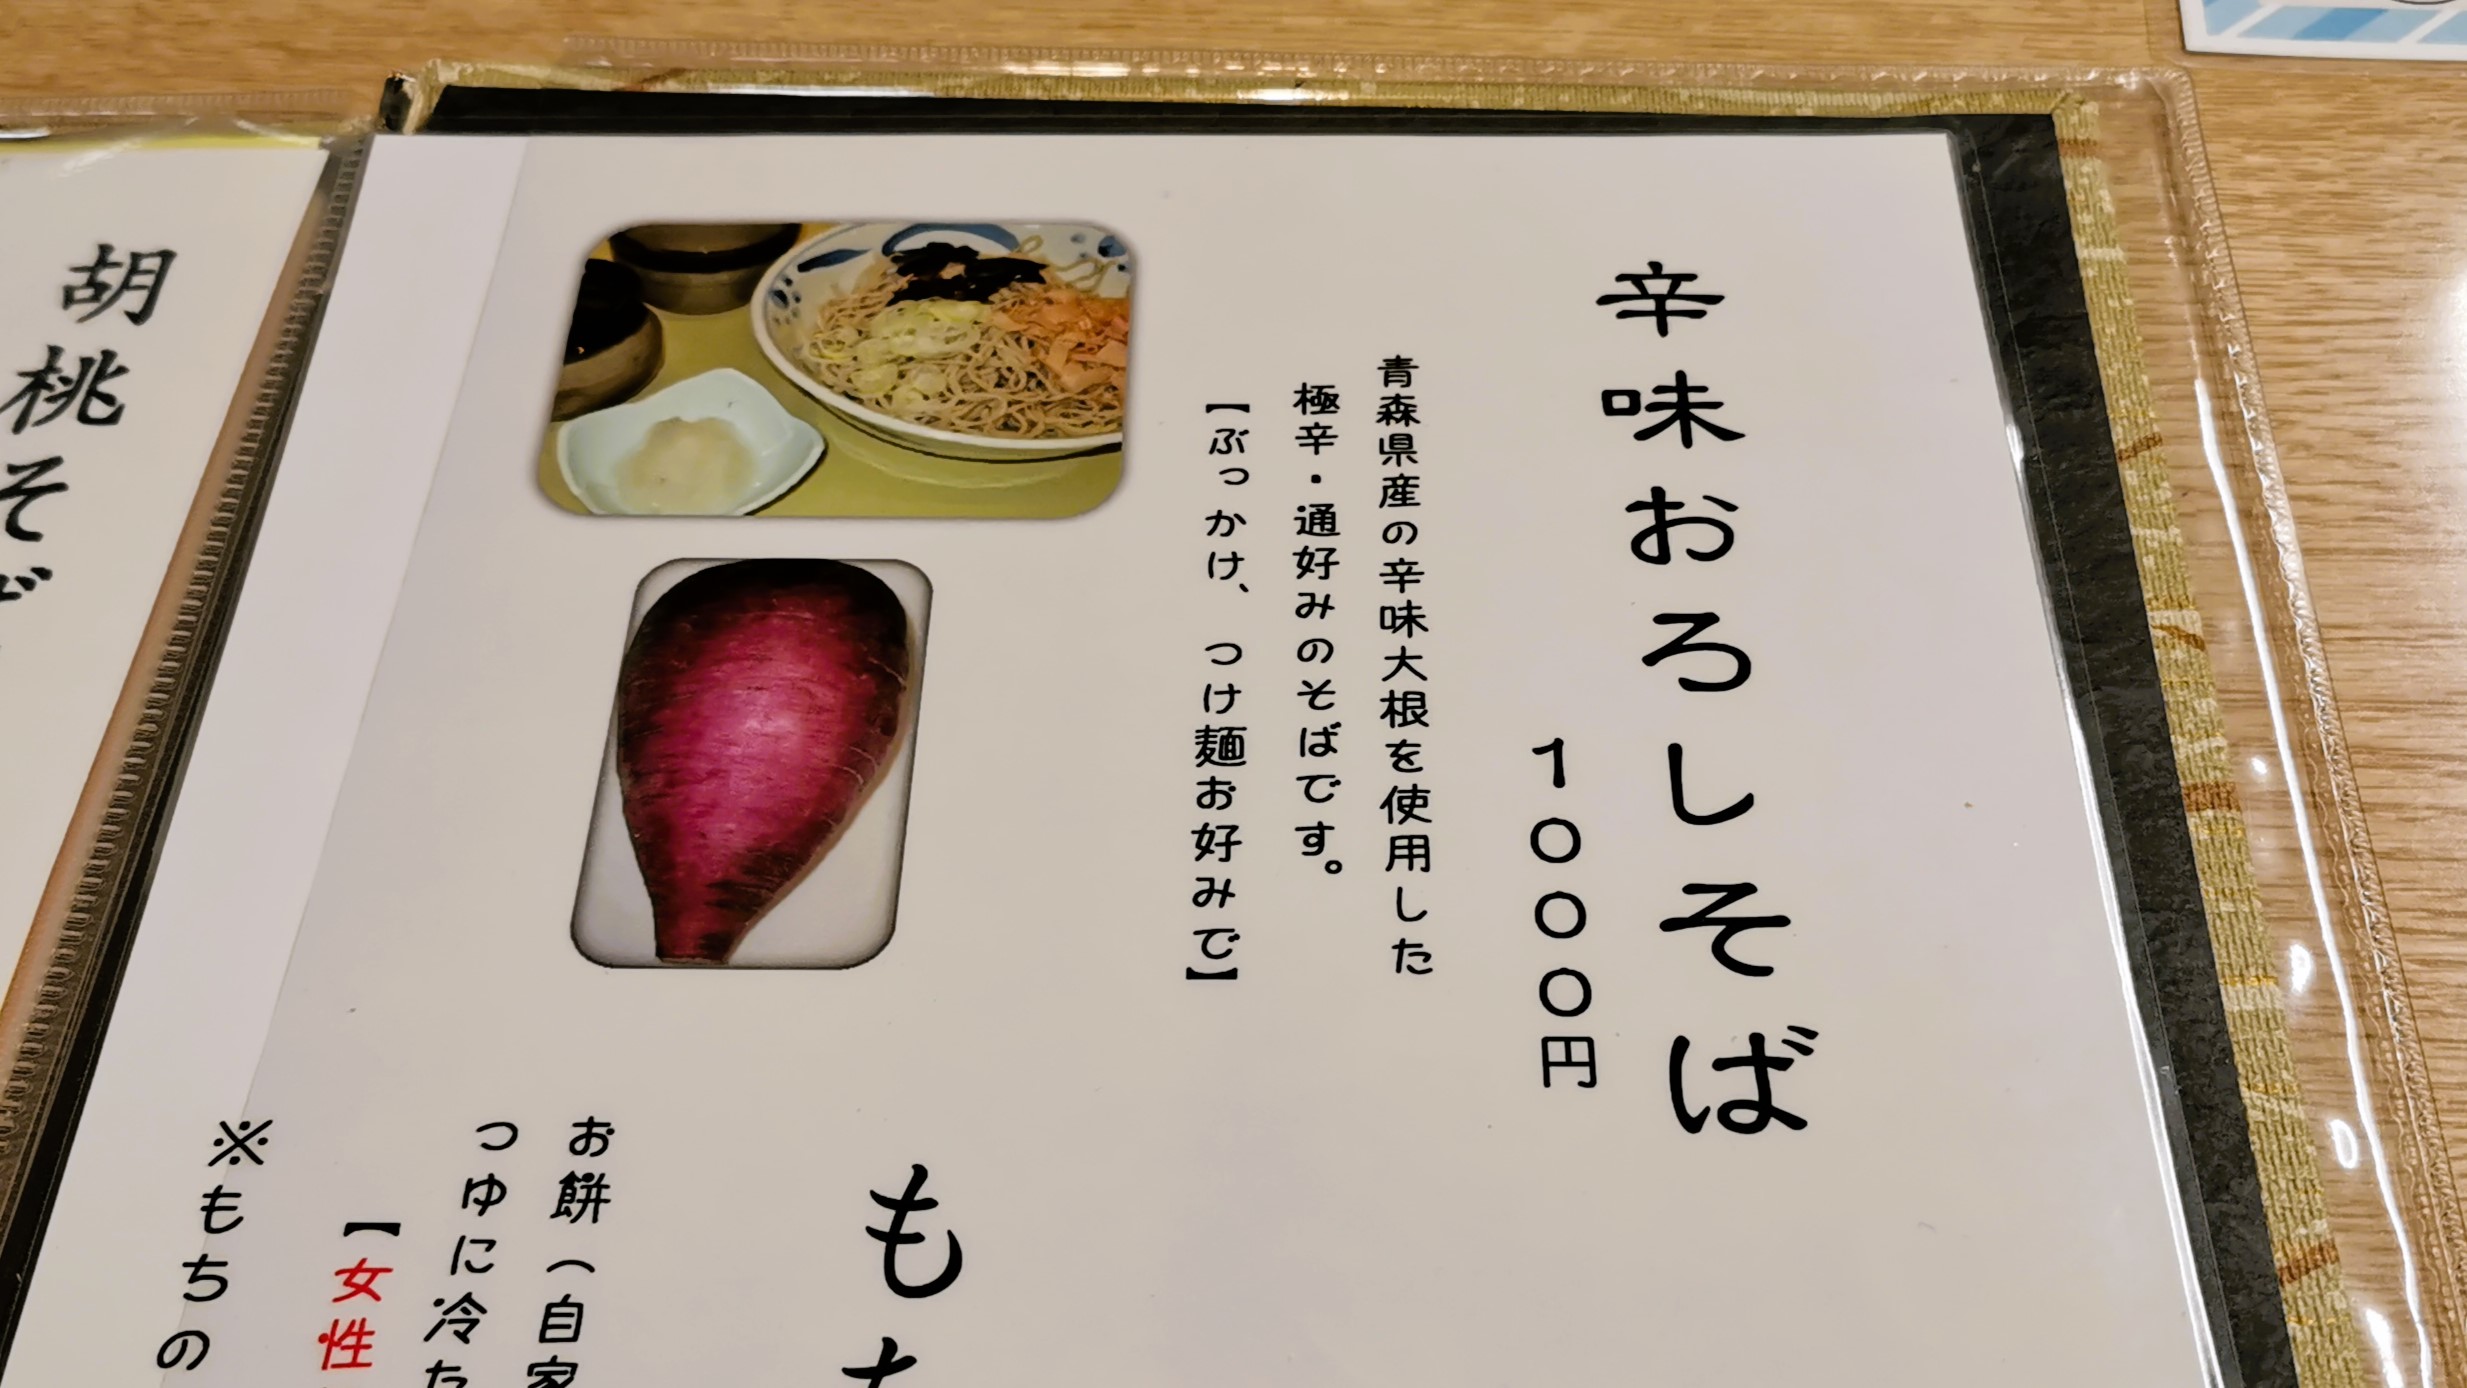 辛味おろしそば
1000円
青森県産の辛味大根を使用した
極辛・通好みのそばです。
【ぶっかけ、つけ麺お好みで】
も
お餅(自家
つゆに冷た
【女性
※もちの
胡桃そば